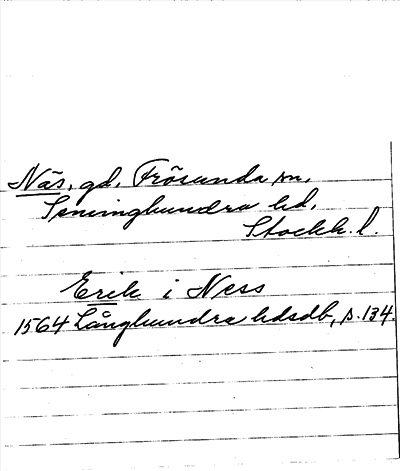 Näs, gd, Frösunda sn,
Seminghundra hd,
Stockh. l.
Erik i Ness
1564 Långhundra hdsdb, s. 134.